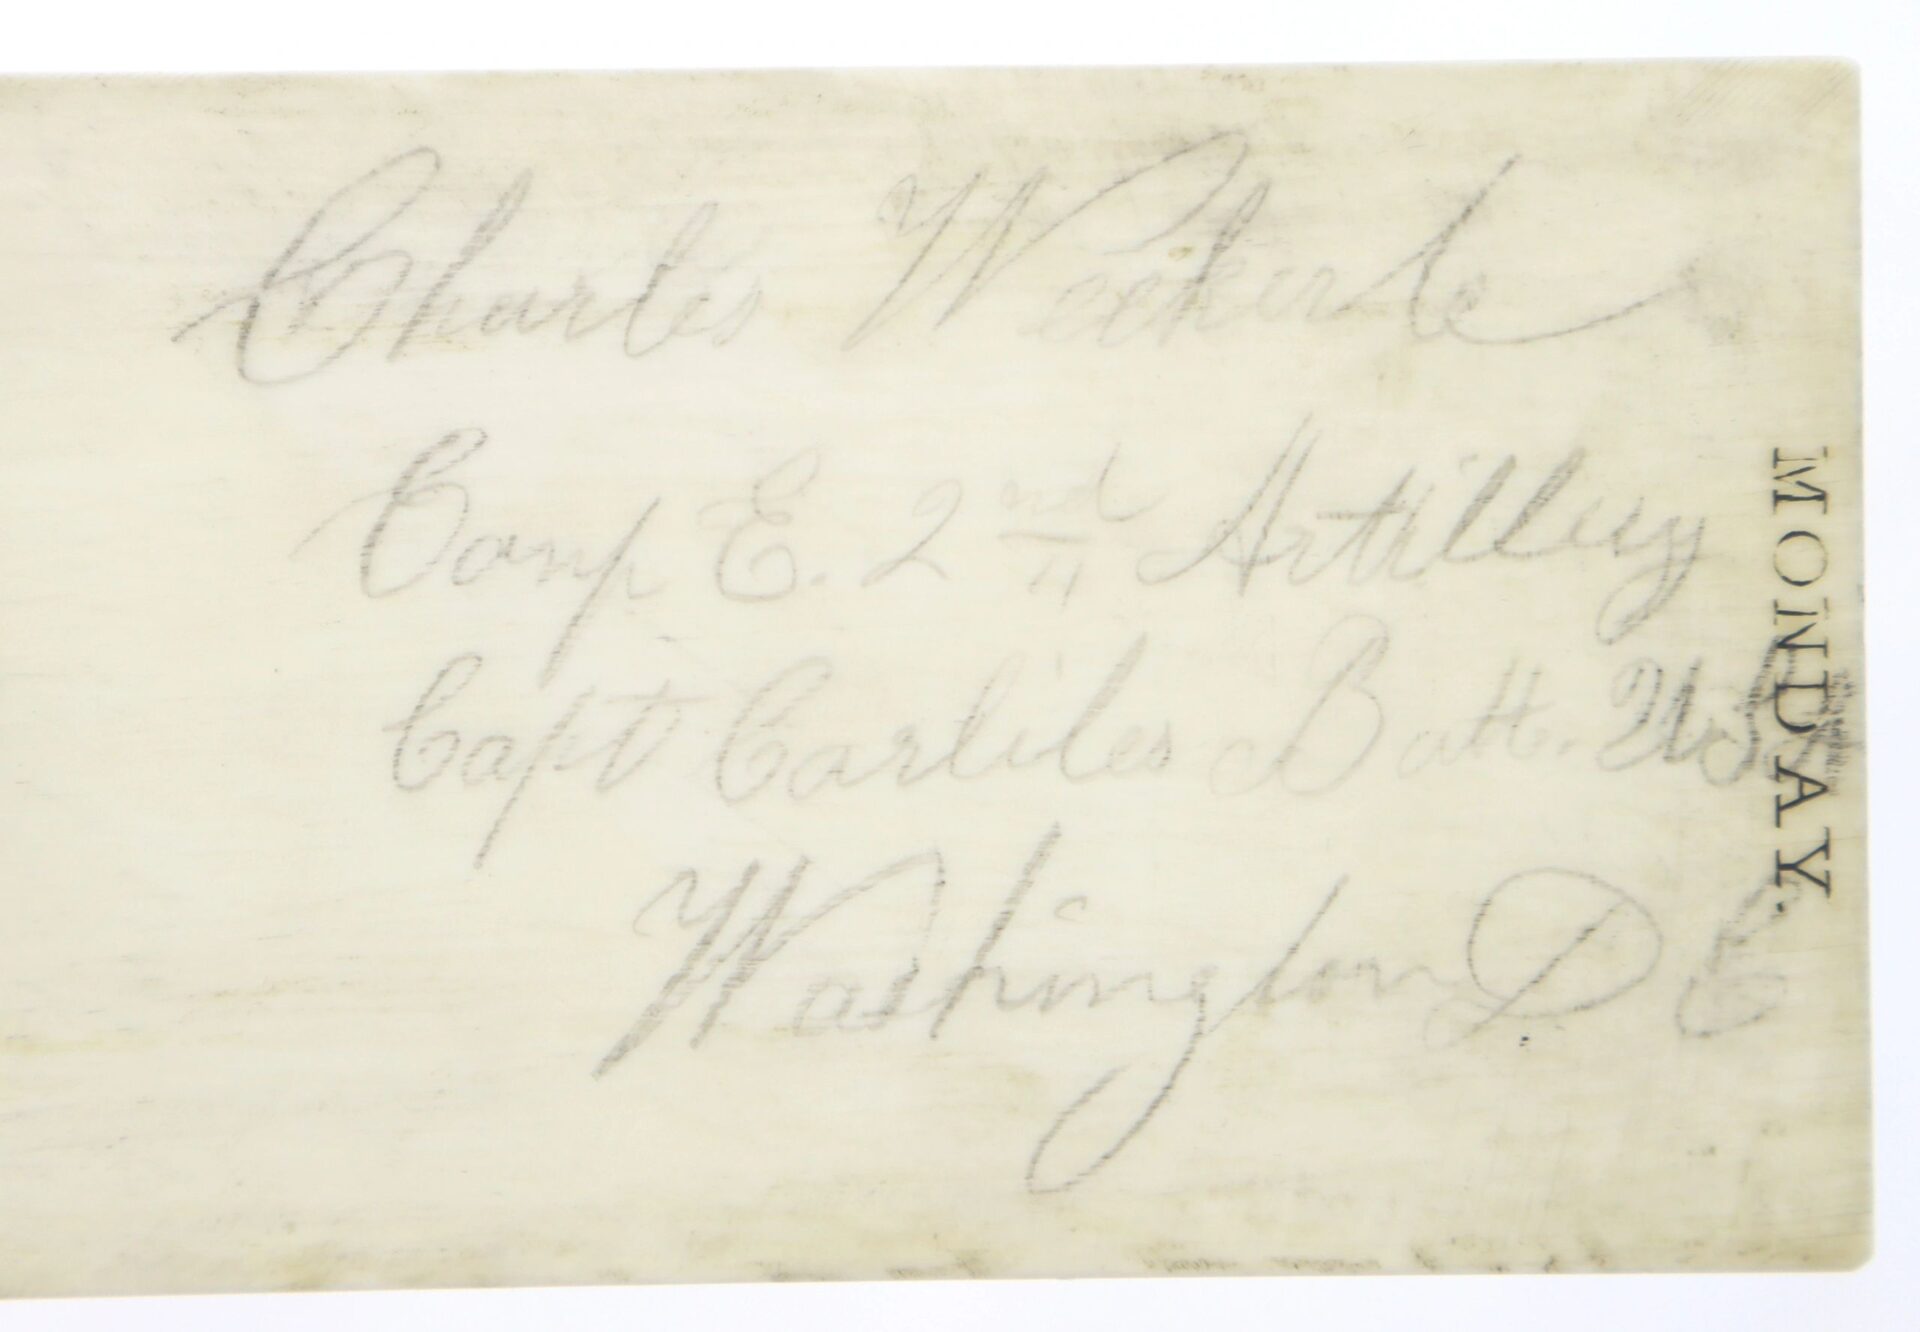 Charles Weckerle
Comp E. 2nd Artillery
Capt Carliles Batt. US
Washington D C
MONDAY.